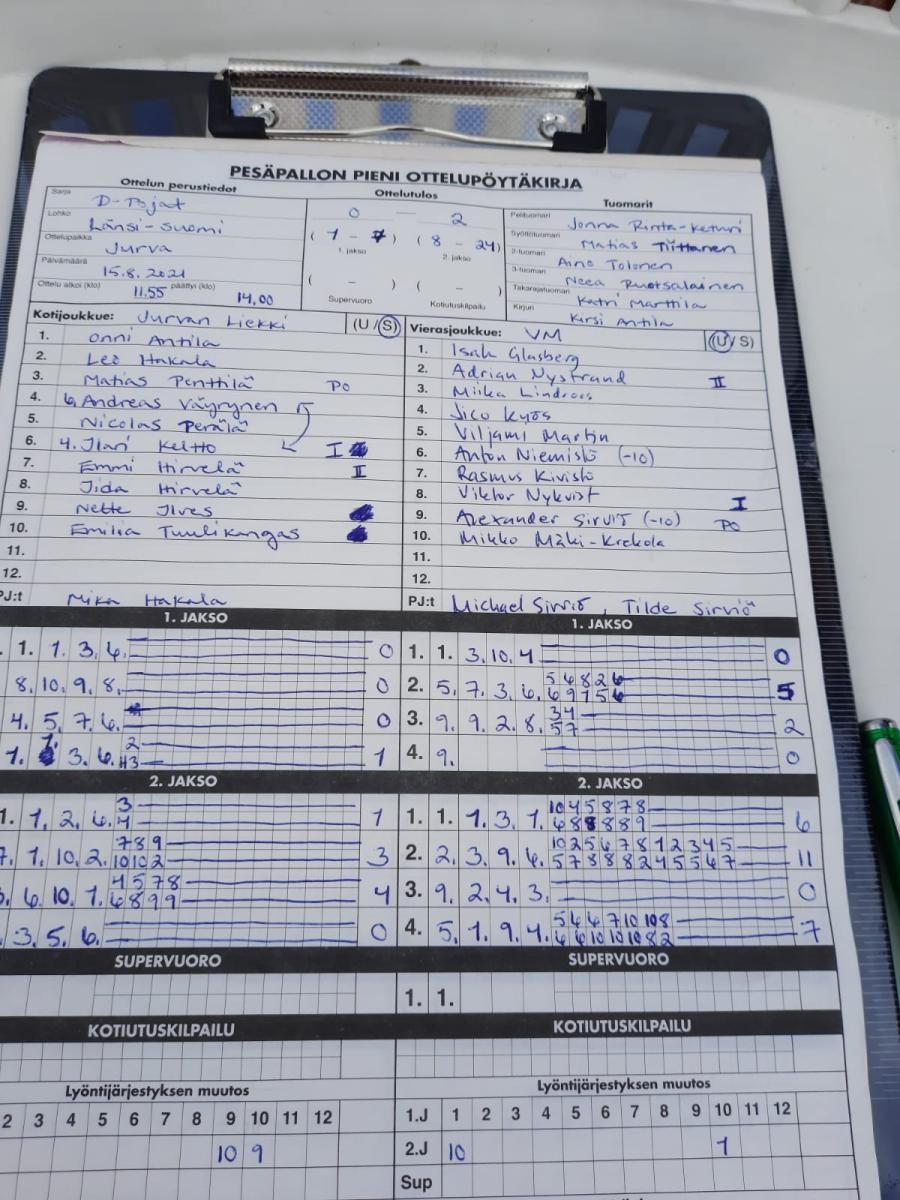 PESÄPALLON PIENI OTTELUPÖYTÄKIRJA
Ottelun perustiedot
Sarja D-Pojat
Lohko Länsi-Suomi
Ottelupaikka Jurva
Päivämäärä 15.8.2021
Ottelu alkoi (klo) 11.55 päättyi (klo) 14.00
Ottelutulos
0 — 2
( 1 - 7 ) ( 8 - 24 )
1. jakso 2. jakso
( - ) ( - )
Supervuoro Kotiutuskilpailu
Tuomarit
Pelituomari Jonna Rinta-Keturi
Syöttötuomari Matias Tiittanen
2-tuomari Aino Tolonen
3-tuomari Neea Ruotsalainen
Takarajatuomari Katri Marttila
Kirjuri Kirsi Antila
Kotijoukkue: Jurvan Liekki (U / S)
1. Onni Antila
2. Leo Hakala
3. Matias Penttilä PO
4. 6. Andreas Väyrynen
5. Nicolas Perälä
6. 4. Ilari Keltto I
7. Emmi Hirvelä II
8. Iida Hirvelä
9. Nette Ilves
10. Emilia Tuulikangas
11.
12.
PJ:t Mika Hakala
Vierasjoukkue: VM (U / S)
1. Isak Glasberg
2. Adrian Nystrand II
3. Miika Lindroos
4. Jico Kyös
5. Viljami Martin
6. Anton Niemistö (-10)
7. Rasmus Kivistö
8. Viktor Nykvist I
9. Alexander Sirviö (-10) PO
10. Mikko Mäki-Krekola
11.
12.
PJ:t Michael Sirviö, Tilde Sirviö
1. JAKSO
1. 1. 3. 6. 0
8. 10. 9. 8. 0
4. 5. 7. 6. 0
1. 1. 3. 6. 2 43 1
1. JAKSO
1. 1. 3. 10. 4 0
2. 5. 7. 3. 6. 5 6 8 2 6 6 9 1 5 6 5
3. 9. 9. 2. 8. 3 4 5 7 2
4. 9. 0
2. JAKSO
1. 1. 2. 6. 3 4 1
7. 1. 10. 2. 7 8 9 10 10 2 3
6. 10. 1. 4 5 7 8 6 8 9 9 4
3. 5. 6. 0
2. JAKSO
1. 1. 1. 3. 1. 10 4 5 8 7 8 6 8 8 8 8 9 6
2. 2. 3. 9. 6. 10 2 5 6 7 8 1 2 3 4 5 5 7 8 8 8 2 4 5 5 6 7 11
3. 9. 2. 4. 3. 0
4. 5. 1. 9. 4. 5 6 6 7 10 10 8 6 6 10 10 10 8 2 7
SUPERVUORO
SUPERVUORO
1. 1.
KOTIUTUSKILPAILU
KOTIUTUSKILPAILU
Lyöntijärjestyksen muutos
2 3 4 5 6 7 8 9 10 11 12
10 9
Lyöntijärjestyksen muutos
1.J 1 2 3 4 5 6 7 8 9 10 11 12
2.J 10 1
Sup